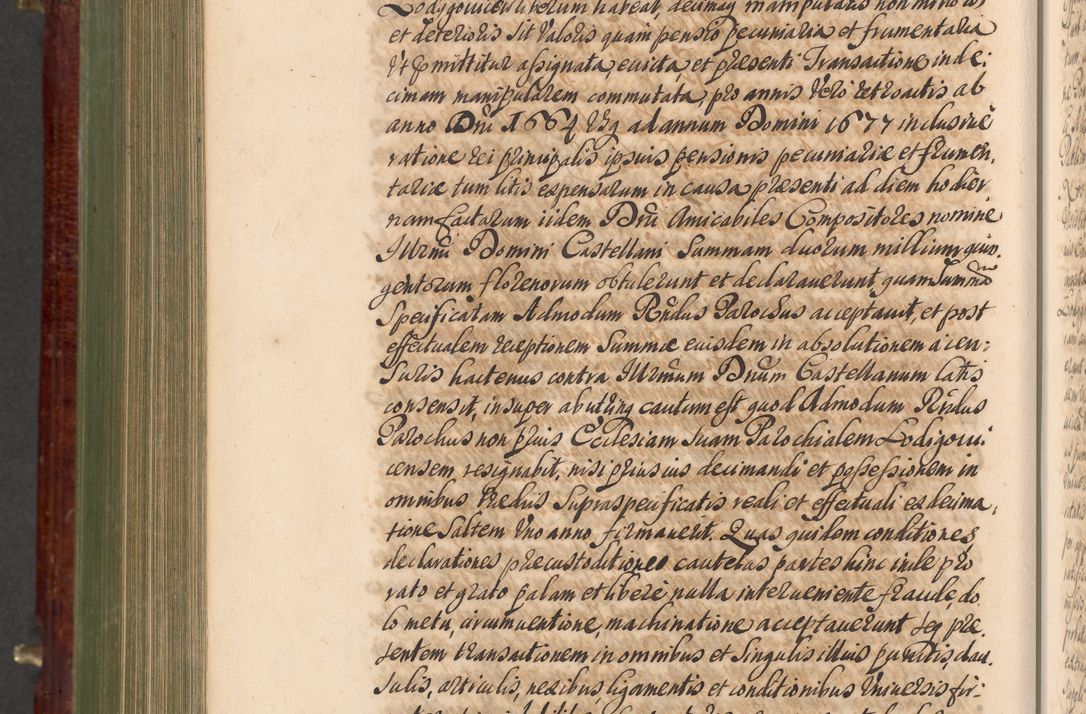 Lodzgovicen liberum habeat, decimaq manipularis non minoris
et deterioris sit valoris quam pensio pecuniaria et frumentaria
ut pmittitur assignata, evicta, et præsenti Transactione in de:
cimam manipularem commutata, pro annis vero retroactis ab
anno Dni 1664 usq ad annum Domini 1677 inclusive
ratione rei principalis ipsius pensionis pecuniariæ et frumen,
tariæ tum litis expensarum in causa præsenti ad diem hodier
nam factarum iidem Dni Amicabiles Compositores nomine
Illrmi Domini Castellani Summam duorum millium quin,
gentorum florenorum obtulerunt et declaraverunt quam Summam
specificatam Admodum Rndus Parochus acceptavit, et post
effectualem receptionem Summæ eiusdem in absolutionem a cen:
suris hactenus contra Illrmum Dnum Castellanum latis
consensit, insuper ab utrinq cautum est quod Admodum Rndus
Parochus non prius Ecclesiam suam Parochialem Lodigovi
censem resignabit, nisi prius ius decimandi et possessionem in
omnibus Prædiis supraspecificatis reali et effectuali exdecima,
tione saltem uno anno firmaverit. Quas quidem conditiones
declarationes præcustoditiones cautelas partes hinc inde pro
rato et grato palam et libere nulla interveniente fraude, do
lo metu, circumventione, machinatione acceptaverunt seq præ,
sentem transactionem in omnibus et singulis illius punctis, clau
sulis, articulis, nexibus, ligamentis et conditionibus universis fir-